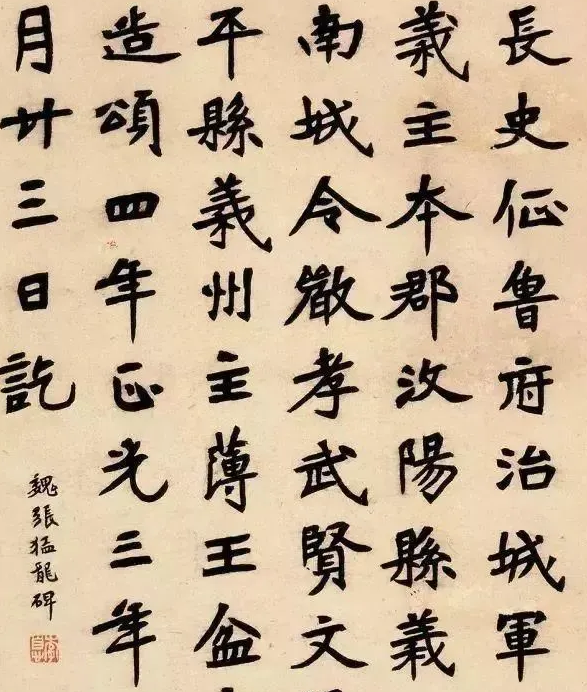 長史征魯府治城軍
義主本郡汶陽縣義
南城令嚴孝武賢文
平縣義州主薄王盆
造頌四年正光三年
月廿三日訖
魏張猛龍碑